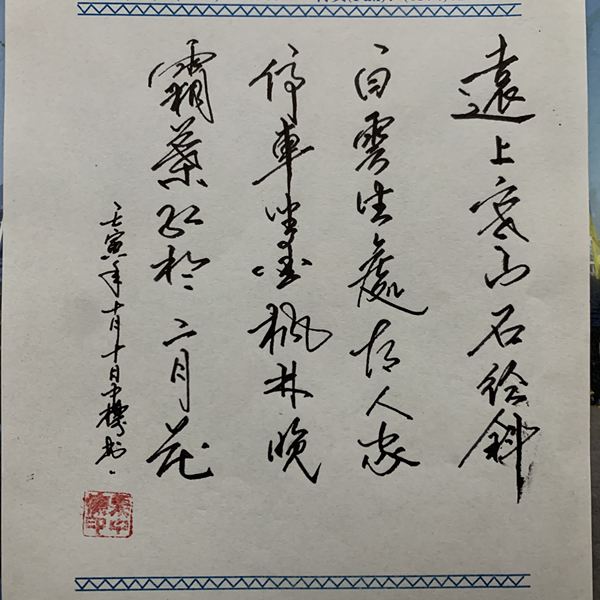 遠上寒山石徑斜
白雲生處有人家
停車坐愛楓林晚
霜葉紅於二月花
壬寅年十月十日中標書